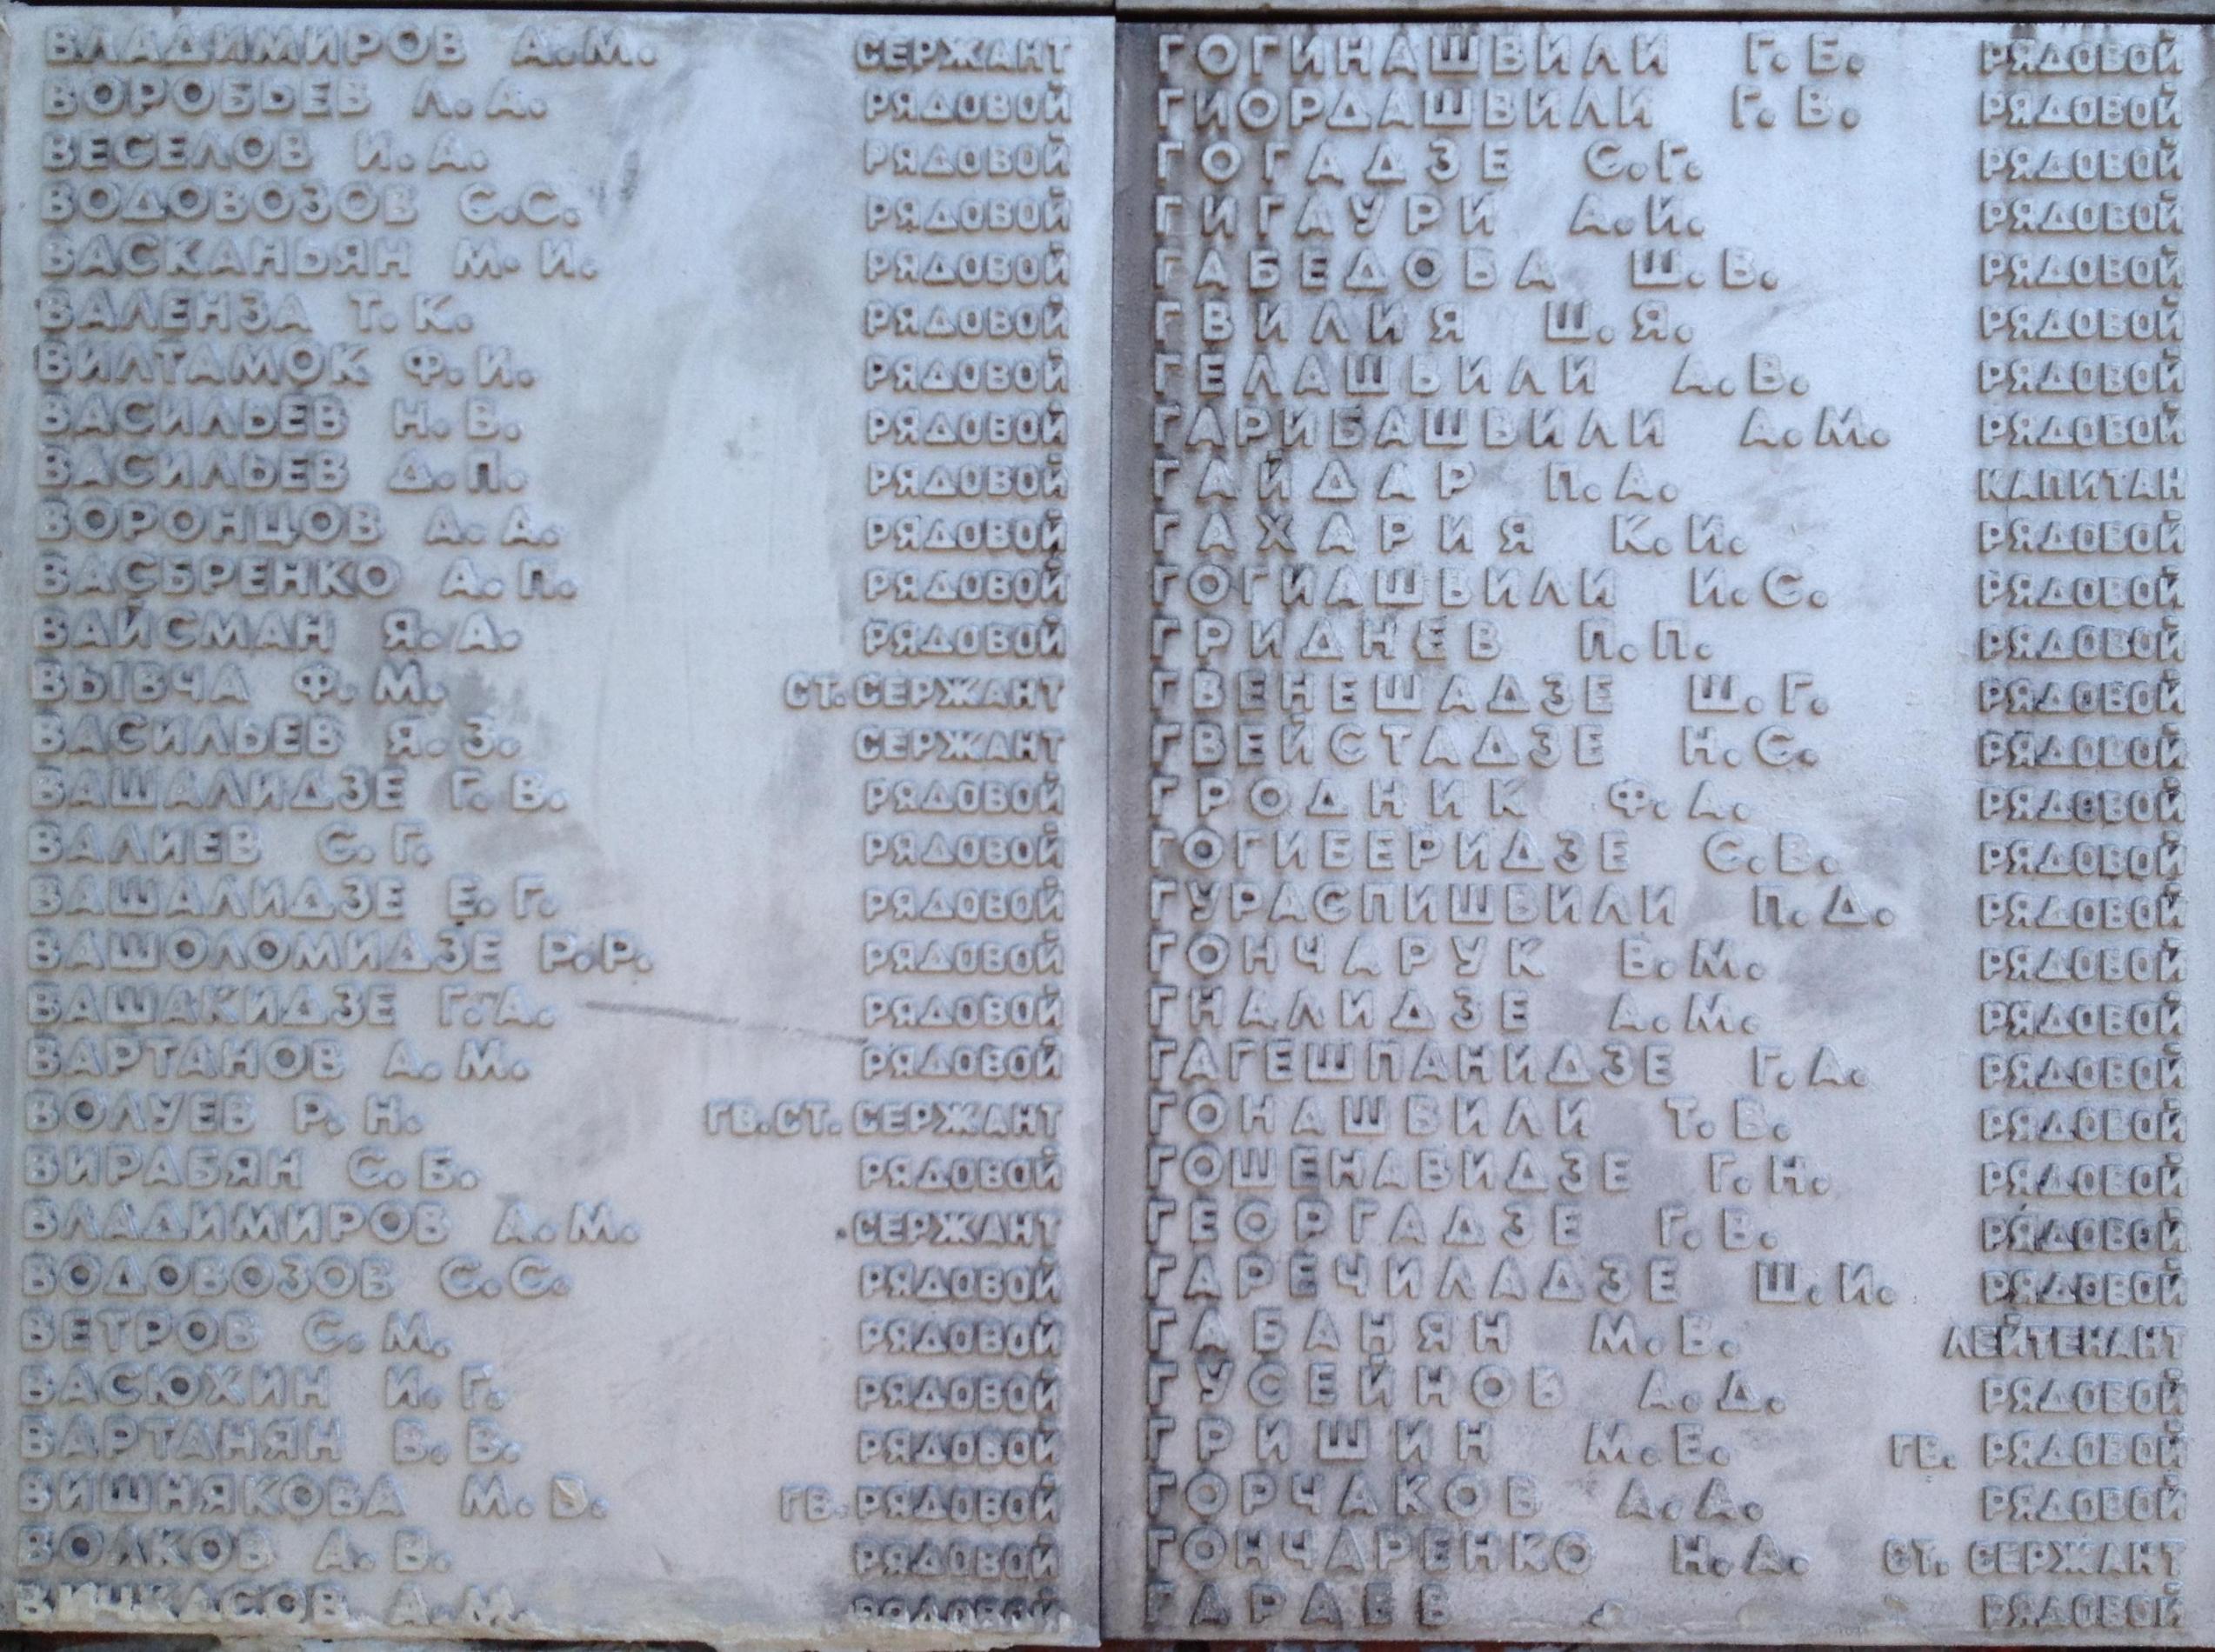 ВЛАДИМИРОВ А.М. СЕРЖАНТ
ВОРОБЬЕВ Л.А. РЯДОВОЙ
ВЕСЕЛОВ И.А. РЯДОВОЙ
ВОДОВОЗОВ С.С. РЯДОВОЙ
ВАСКАНЬЯН М.И. РЯДОВОЙ
ВАЛЕНЗА Т.К. РЯДОВОЙ
ВИЛТАМОК Ф.И. РЯДОВОЙ
ВАСИЛЬЕВ Н.В. РЯДОВОЙ
ВАСИЛЬЕВ Д.П. РЯДОВОЙ
ВОРОНЦОВ А.А. РЯДОВОЙ
ВАСБРЕНКО А.П. РЯДОВОЙ
ВАЙСМАН Я.А. РЯДОВОЙ
ВЫВЧА Ф.М. СТ. СЕРЖАНТ
ВАСИЛЬЕВ Я.З. СЕРЖАНТ
ВАШАЛИДЗЕ Г.В. РЯДОВОЙ
ВАЛИЕВ С.Г. РЯДОВОЙ
ВАШАЛИДЗЕ Е.Г. РЯДОВОЙ
ВАШОЛОМИДЗЕ Р.Р. РЯДОВОЙ
ВАШАКИДЗЕ Г.А. РЯДОВОЙ
ВАРТАНОВ А.М. РЯДОВОЙ
ВОЛУЕВ Р.Н. ГВ.СТ. СЕРЖАНТ
ВИРАБЯН С.Б. РЯДОВОЙ
ВЛАДИМИРОВ А.М. СЕРЖАНТ
ВОДОВОЗОВ С.С. РЯДОВОЙ
ВЕТРОВ С.М. РЯДОВОЙ
ВАСЮХИН И.Г. РЯДОВОЙ
ВАРТАНЯН В.В. РЯДОВОЙ
ВИШНЯКОВА М. ГВ. РЯДОВОЙ
ВОЛКОВ А.В. РЯДОВОЙ
А.М. РЯДОВОЙ
ГОГИНАШВИЛИ Г.Б. РЯДОВОЙ
ГИОРДАШВИЛИ Г.В. РЯДОВОЙ
ГОГАДЗЕ С.Г. РЯДОВОЙ
ГИГАУРИ А.И. РЯДОВОЙ
ГАБЕДОВА Ш.В. РЯДОВОЙ
ГВИЛИЯ Ш.Я. РЯДОВОЙ
ГЕЛАШВИЛИ А.В. РЯДОВОЙ
ГАРИБАШВИЛИ А.М. РЯДОВОЙ
ГАЙДАР П.А. КАПИТАН
ГАХАРИЯ К.И. РЯДОВОЙ
ГОГИАШВИЛИ И.С. РЯДОВОЙ
ГРИДНЕВ П.П. РЯДОВОЙ
ГВЕНЕШАДЗЕ Ш.Г. РЯДОВОЙ
ГВЕЙСТАДЗЕ Н.С. РЯДОВОЙ
ГРОДНИК Ф.А. РЯДОВОЙ
ГОГИБЕРИДЗЕ С.В. РЯДОВОЙ
ГУРАСПИШВИЛИ П.Д. РЯДОВОЙ
ГОНЧАРУК В.М. РЯДОВОЙ
ГНАЛИДЗЕ А.М. РЯДОВОЙ
ГАГЕШПАНИДЗЕ Г.А. РЯДОВОЙ
ГОНАШВИЛИ Т.В. РЯДОВОЙ
ГОШЕНАВИДЗЕ Г.Н. РЯДОВОЙ
ГЕОРГАДЗЕ Г.В. РЯДОВОЙ
ГАРЕЧИЛАДЗЕ Ш.И. РЯДОВОЙ
ГАБАНЯН М.В. ЛЕЙТЕНАНТ
ГУСЕЙНОВ А.Д. РЯДОВОЙ
ГРИШИН М.Е. ГВ. РЯДОВОЙ
ГОРЧАКОВ А.А. РЯДОВОЙ
ГОНЧАРЕНКО Н.А. СТ. СЕРЖАНТ
ГАРАЕВ РЯДОВОЙ